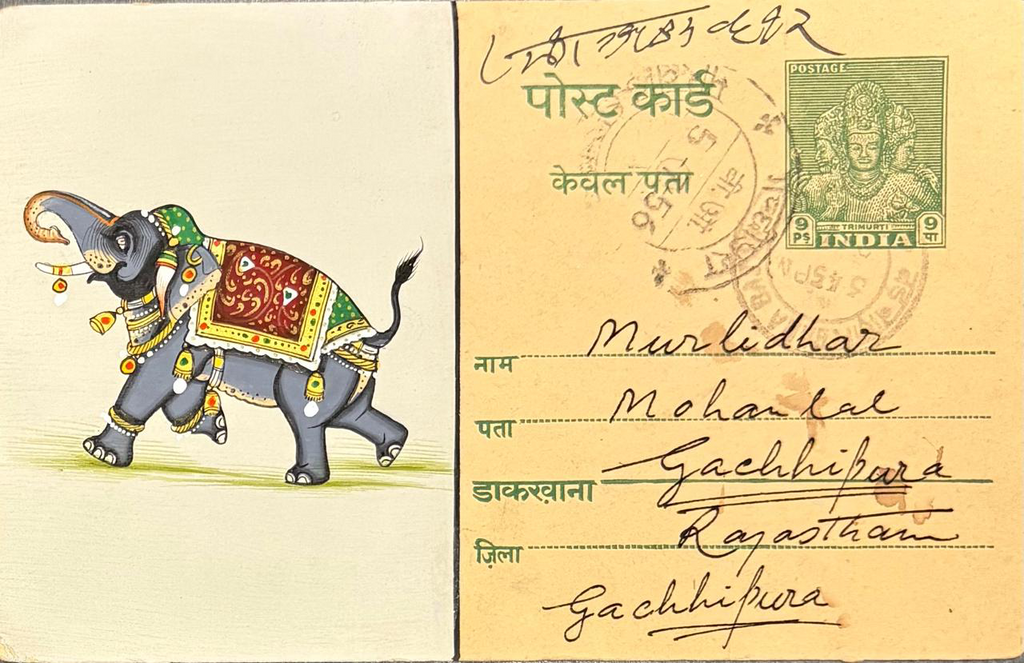 पोस्ट कार्ड
केवल पता
POSTAGE
9 PS
TRIMURTI
INDIA
9 पा
5
56
3 45 PM
नाम Murlidhar
पता Mohanlal
डाकखाना Gachhipura
ज़िला Rajasthan
Gachhipura